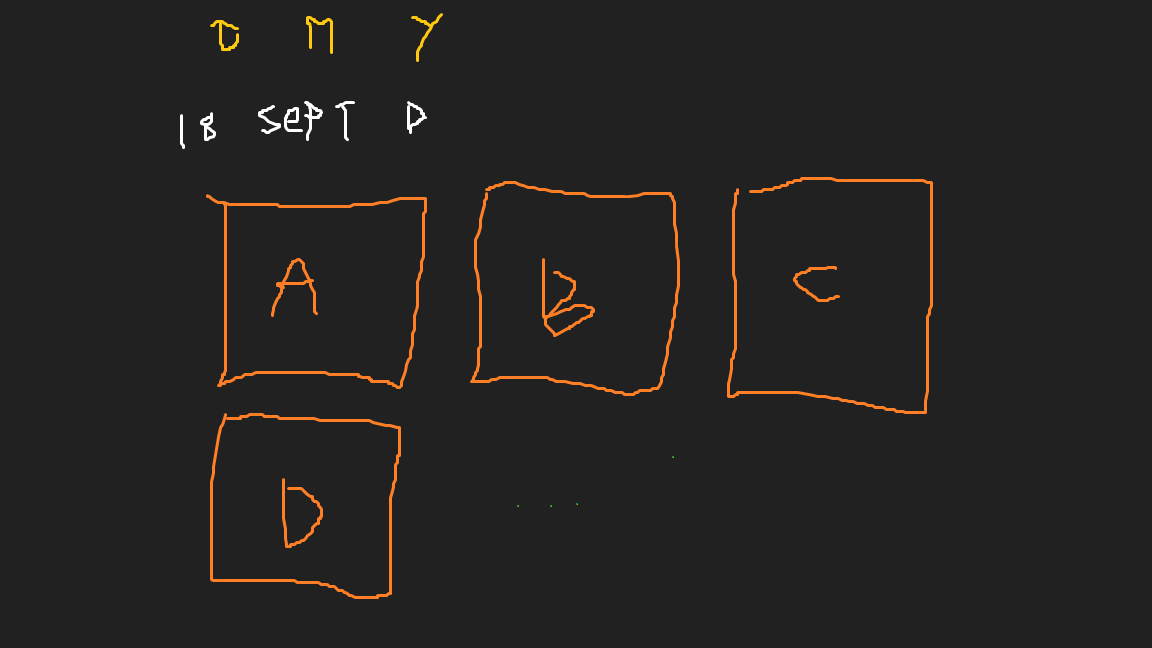 D M Y
18 SEPT D
A B C
D